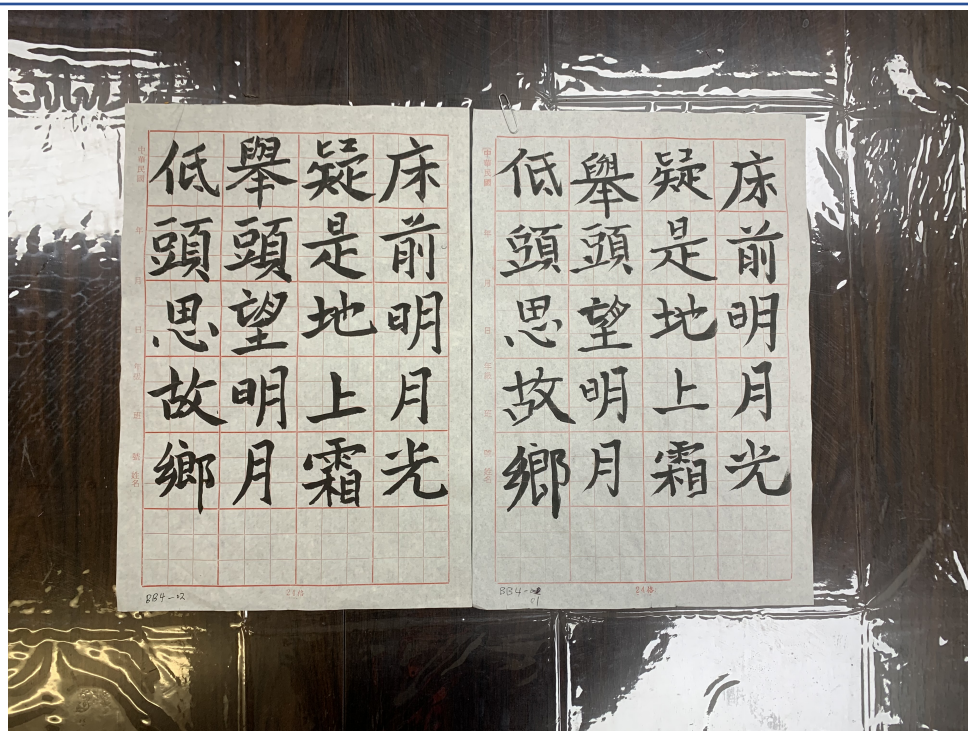 床前明月光
疑是地上霜
舉頭望明月
低頭思故鄉
中華民國 年 月 日 年級 班 號 姓名
BB4-02
床前明月光
疑是地上霜
舉頭望明月
低頭思故鄉
中華民國 年 月 日 年級 班 號 姓名
BB4-
01